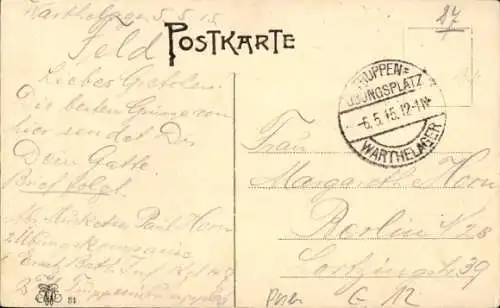 Warthelager 5.5.15
Feld
POSTKARTE
27
Liebes Gretchen.
Die besten Grüsse von
hier sendet Dir
Dein Gatte.
Brief folgt.
Abs. Musketier Paul Horn
2
1 Ers. Batl. Inf. Rgt
TRUPPEN=
ÜBUNGSPLATZ
-6.5.15.12-1N
WARTHELAGER
Frau
Margareth Horn
Berlin N 28
39
Posen
G 12
81